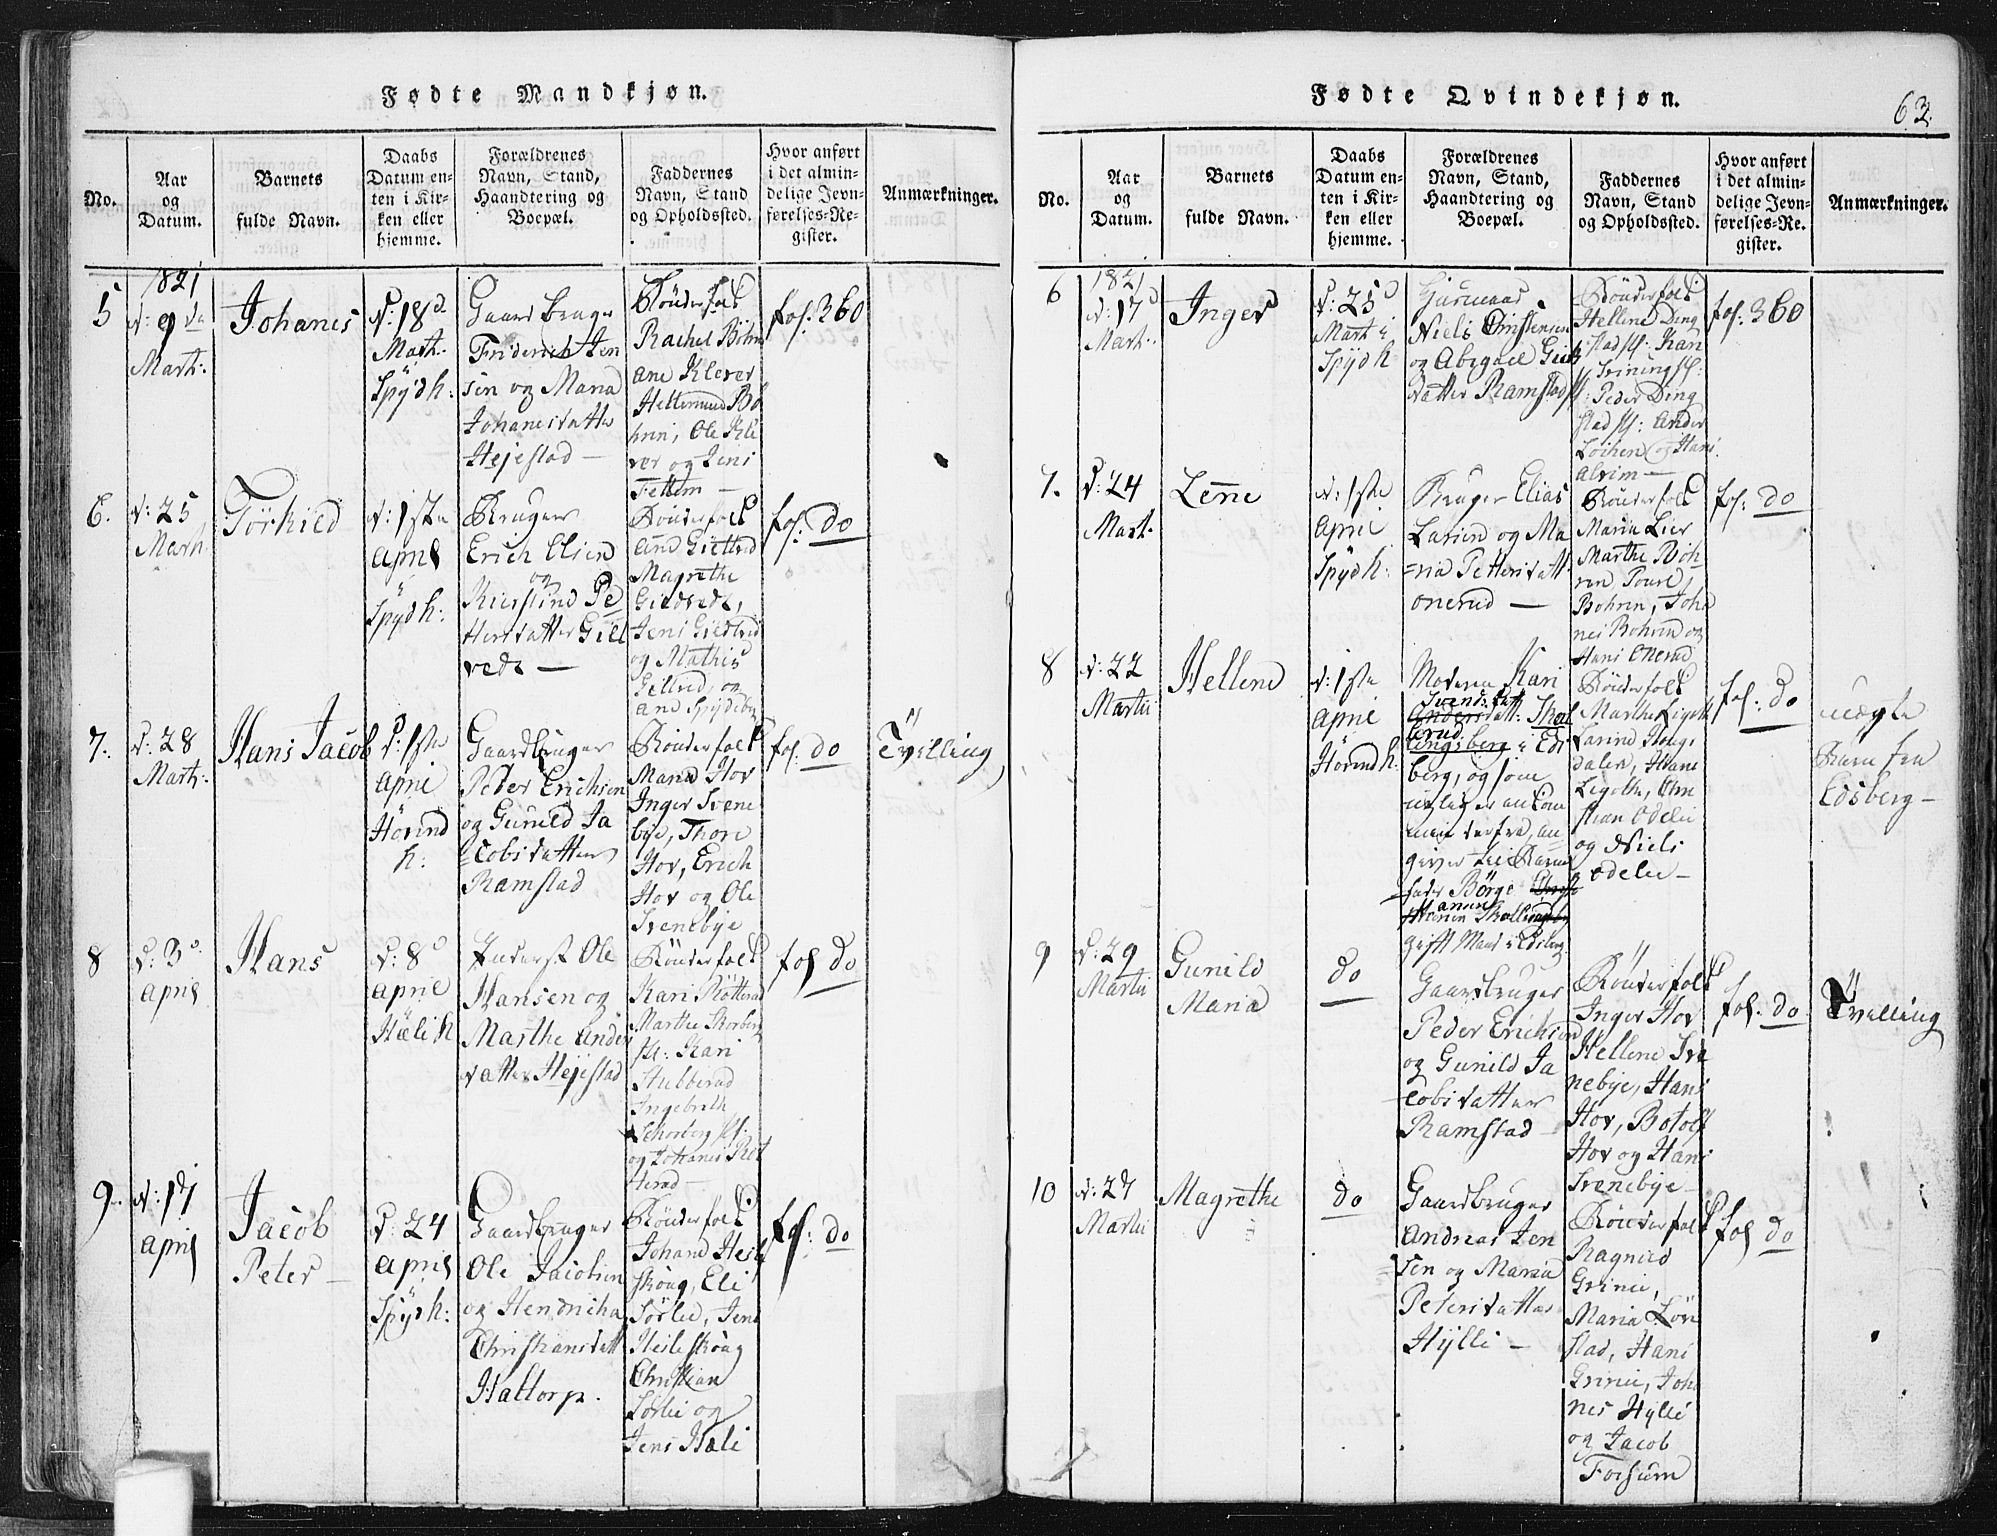 Fødte Mandkjøn.
No.
Aar
og
Datum.
Barnets
fulde Navn.
Daabs
Datum en-
ten i Kir-
ken eller
hjemme.
Forældrenes
Navn, Stand,
Haandtering og
Boepæl.
Faddernes
Navn, Stand
og Opholdssted.
Hvor anført
i det almin-
delige Jevn-
førelses-Re-
gister.
Anmærkninger.
5
1821
d: 9 da
Mart:
Johanes
d: 18d
Mart.
Spydh:
Gaardbruger
Friderich Jen
sen og Maria
Johanesdatter
Hejestad —
Bönderfolk
Rachel Böhn
ane Klever
Hellemund Bö
hrin, Ole Kle
ver og Jens
Tettem —
fol: 360
6.
d: 25
Marth
Törkild
d: 1ste
April
Spydh:
Bruger
Erich Olsen
og
Kierstine Pe
thersdatter Gill
vede —
Bönderfolk
Magrethe
og Mathis
ane Spydeberg
fol: do
7.
d: 28
Mart:
Hans Jacob
d: 1ste
April
Hövind
h:
Gaardbruger
Peder Erichsen
og Gunild Ja
cobsdatter
Ramstad
Bönderfolk
Maria Hov
Inger Svene
bye, Thore
Hov, Erich
Hov og Ole
Svenebye
fol: do
Tvilling
8
d: 3d
April
Hans
d: 8d
April
Hæli k
Inderst Ole
Hansen og
Marthe Anders
datter Hejestad
Bönderfolk
Kari Rötterud
Marthe Skorberg
sk: Kari
Stubberud
Ingebreth
Schorberg sk:
og Johanes Röt
terud —
fol do
9.
d: 17
April
Jacob
Peter —
d: 24
April
Spydh:
Gaardbruger
Ole Jacobsen
og Hendricha
Christiansdatt
Haltorp.
Bönderfolk
Johane Heile
skoug, Eli
Sörlie, Jens
Heileskoug
Christian
Sörlie og
Jens Hæli
fol: do
Fødte Qvindekjøn.
63.
No.
Aar
og
Datum.
Barnets
fulde Navn.
Daabs
Datum en-
ten i Kir-
ken eller
hjemme.
Forældrenes
Navn, Stand,
Haandtering og
Boepæl.
Faddernes
Navn, Stand
og Opholdssted.
Hvor anført
i det almin-
delige Jevn-
førelses-Re-
gister.
Anmærkninger.
6
1821
d: 17d
Mart.
Inger
d: 25d
Mart i
Spydh
Huusmand
Niels Christensen
og Abegael Giert
datter Ramstad
Bönderfolk
Hellene Ding
stad sk: Kari
Peder Ding
stad sk: Ander
Löchen og Hans
Alvim —
fol: 360
7.
d: 24
Mart.
Lene
d: 1ste
April
Spydh:
Bruger Elias
Larsen og Ma
ria Pettersdatt
Onerud —
Bönderfolk
Maria Lier
Marthe Boh
ren Povel
Bohren, Joha
nes Bohren og
Hans Onerud
fol: do
8
d: 22
Martii
Hellene
d: 1ste
April
Hövindh:
Moderen Kari
Svendsdatt
Andersdatt: Skal
lerud
lingsberg i Eds
berg, og som
angiver til Barne
fader Börge
Hansen
gift Mand i Edsberg
Bönderfolk
Marthe Ligolth
Karine Hougs
dalen, Hans
Ligolth, Chri
stian Odelie
og Niels
Odelie —
fol: do
uægte
Barn fra
Edsberg —
9
d: 29
Martii
Gunild
Maria
do
Gaardbruger
Peder Erichsen
og Gunild Ja
cobsdatter
Ramstad —
Bönderfolk
Inger Hov
Hellene Sve
nebye, Hans
Hov, Botolf
Hov og Hans
Svenebye —
fol: do
Tvilling
10
d: 27
Martii
Magrethe
do
Gaardbruger
Andreas Jen
sen og Maria
Petersdatter
Hylli —
Bönderfolk
Ragnild
Grinie,
Maria Löv
stad, Hans
Grinie, Joha
nes Hylli
og Jacob
Forsum
fol do